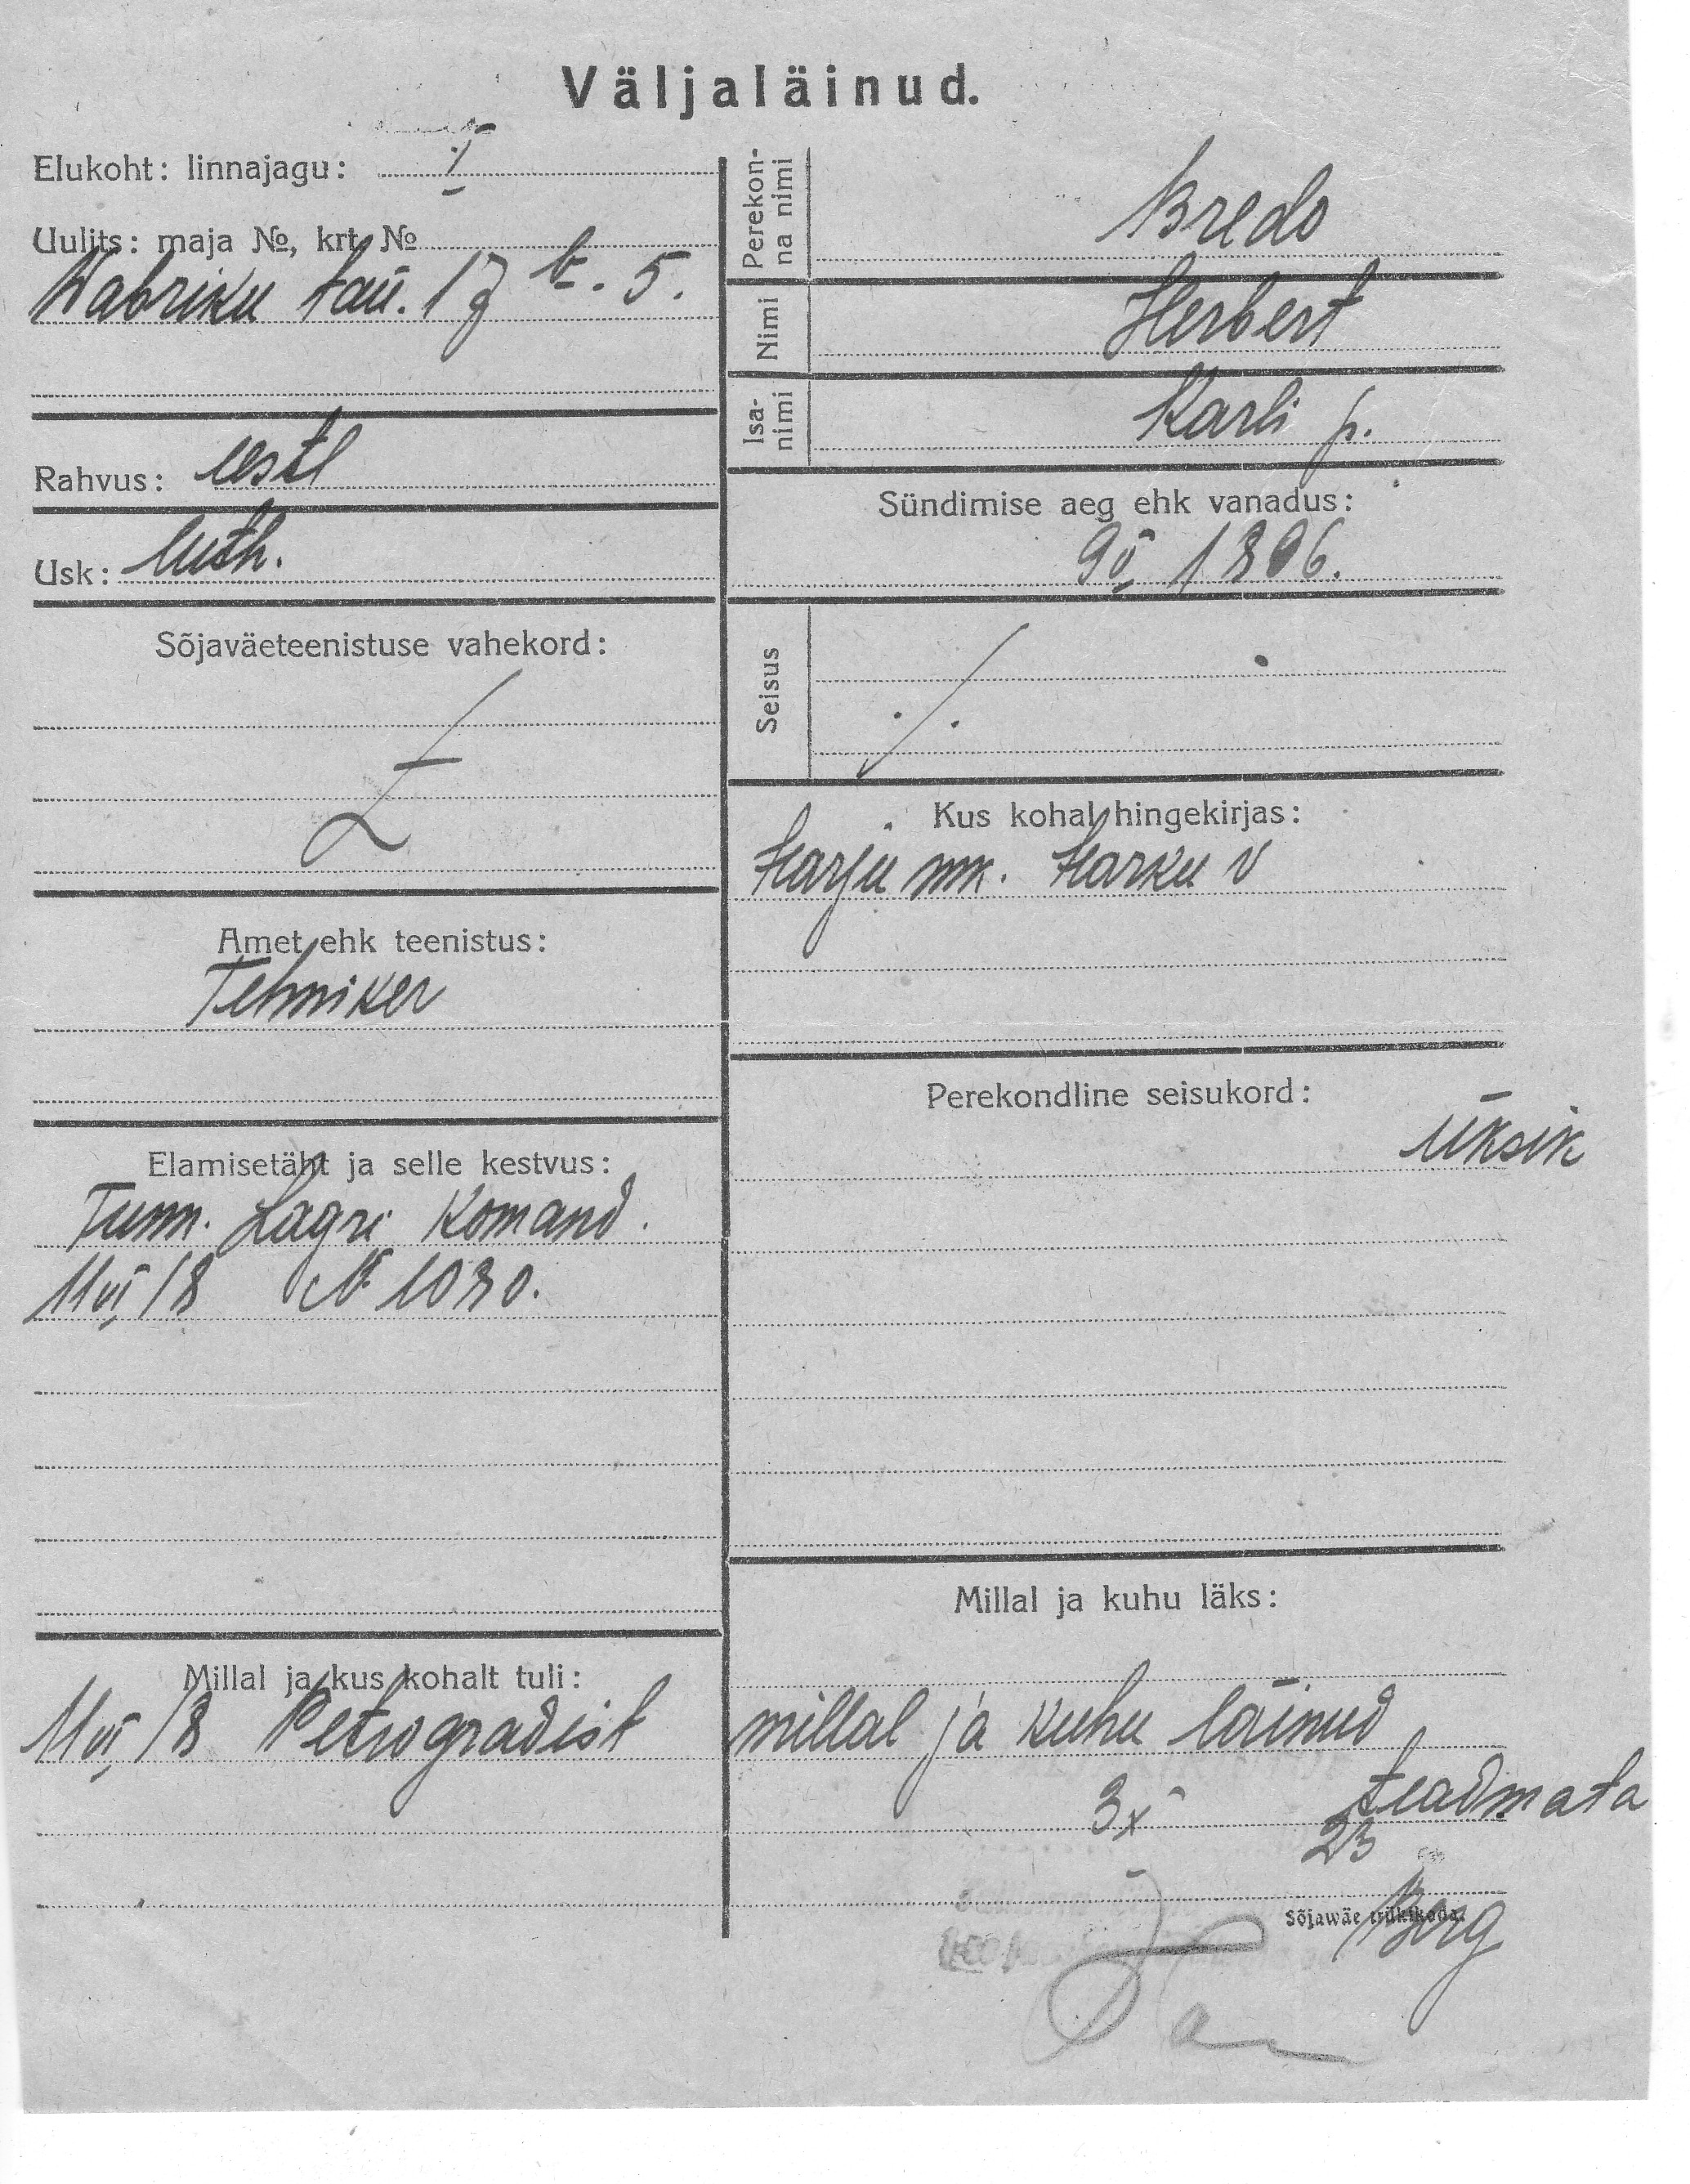 Väljaläinud.
Elukoht: linnajagu: I
Uulits: maja №, krt. №
Wabriku tän. 17 k. 5.
Rahvus: eestl
Usk: luth.
Sõjaväeteenistuse vahekord:
Amet ehk teenistus:
Tehniker
Elamisetäht ja selle kestvus:
Tunn. Lagri Komand.
11 VI 18 № 1030.
Millal ja kus kohalt tuli:
11 VI 18 Petrogradist
Perekonna nimi
Bredo
Nimi
Herbert
Isa-nimi
Karli p.
Sündimise aeg ehk vanadus:
9 V 1896.
Seisus
Kus kohal hingekirjas:
Harju mk. Harku v
Perekondline seisukord:
üksik
Millal ja kuhu läks:
millal ja kuhu läinud
teadmata
3 X 23
Sõjawäe trükikoda.
Berg